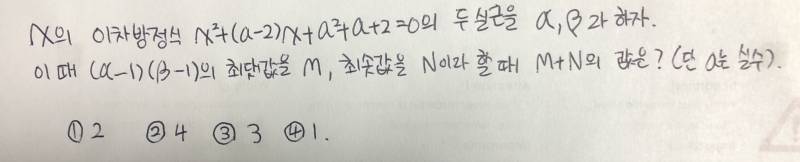 x의 이차방정식 x²+(a-2)x+a²+a+2=0의 두 실근을 α, β라 하자.
이 때 (α-1)(β-1)의 최댓값을 M, 최솟값을 N이라 할 때 M+N의 값은? (단 a는 실수).
① 2 ② 4 ③ 3 ④ 1.